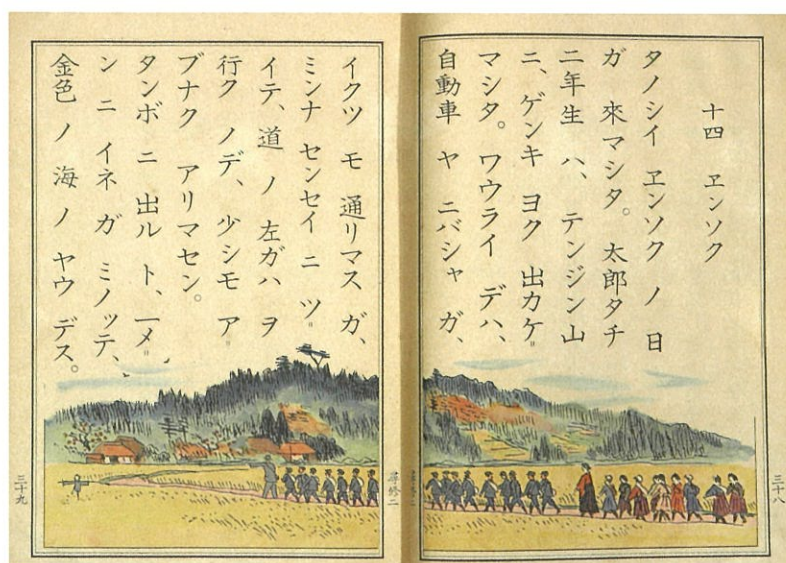 十四 ヱンソク
タノシイ ヱンソク ノ 日
ガ 來マシタ。太郎タチ
二年生 ハ、テンジン山
ニ、ゲンキ ヨク 出カケ〓
マシタ。ワウライ デハ、
自動車 ヤ ニバシャ ガ、
三十八
イクツ モ 通リマス ガ、
ミンナ センセイ ニ ツ〓
イテ、道 ノ 左ガハ ヲ
行ク ノデ、少シモ ア〓
ブナク アリマセン。
タンボ ニ 出ル ト、一メ〓
ン ニ イネ ガ ミノッテ、
金色 ノ 海 ノ ヤウ デス。
尋修二
三十九